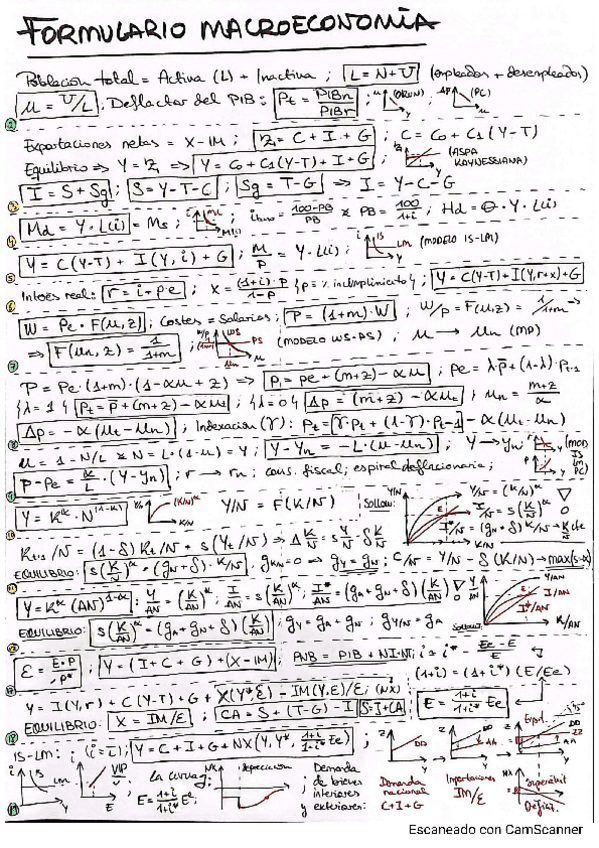 FORMULARIO MACROECONOMÍA
Población total = Activa (L) + Inactiva ; L = N+U (empleados + desempleados)
u = U/L ; Deflactor del PIB: Pt = PIBn/PIBr ; u (OKUN) ΔP (PC)
Exportaciones netas = X-IM ; Z = C+I+G ; C = C0 + C1(Y-T)
Equilibrio → Y = Z ⇒ Y = C0 + C1(Y-T) + I + G ; (ASPA KAYNESSIANA)
I = S + Sg ; S = Y-T-C ; Sg = T-G ⇒ I = Y-C-G
Md = Y·L(i) = Ms ; PB = 100/1+i ; Hd = θ·Y·L(i)
Y = C(Y-T) + I(Y,i) + G ; M/P = Y·L(i) ; IS LM (MODELO IS-LM)
Interés real: r = i - pe ; X = (1+i)·P/1-P {p = % incumplimiento} ; Y = C(Y-T)+I(Y,r+x)+G
W = Pe·F(u,z) ; Costes = Salarios ; P = (1+m)·W ; W/P = F(u,z) = 1/1+m →
⇒ F(un,z) = 1/1+m ; W/P WS PS un u (MODELO WS-PS) u → un (MP)
P = Pe·(1+m)·(1-αu+z) ⇒ Pt = pe + (m+z) - αu ; pe = λp̄ + (1-λ)·Pt-1
{λ=1} Pt = p̄ + (m+z) - αut ; {λ=0} Δp = (m+z) - αut ; un = m+z/α
Δp = -α(ut-un) ; Indexación (γ): Pt = [γ·Pt + (1-γ)·Pt-1] - α(ut-un)
u = 1 - N/L ; N = L·(1-u) = Y ; Y-Yn = -L·(u-un) ; Y → Yn (MOD IS LM PC)
p-pe = α/L·(Y-Yn) ; r → rn ; cons. fiscal ; espiral deflacionaria ;
Y = K^α·N^(1-α) ; Y/N (K/N)^α K/N Y/N = F(K/N) Sollow: Y/N K/N Y/N = (K/N)^α
I/N = s(K/N)^α
I*/N = (gN+δ)K/N → K cte
Kt+1/N = (1-δ)Kt/N + s(Yt/N) ⇒ ΔK/N = s Y/N - δ K/N
EQUILIBRIO: s(K/N)^α = (gN+δ)·K/N ; gK/N = 0 ⇒ gY = gN ; C/N = Y/N - δ(K/N) → max(s-α)
Y = K^α(AN)^1-α ; Y/AN = (K/AN)^α ; I/AN = s(K/AN)^α ; I*/AN = (gA+gN+δ)(K/AN)
Y/AN I/AN I*/AN K/AN Sollow
EQUILIBRIO: s(K/AN)^α = (gA+gN+δ)(K/AN) ; gY = gA + gN ; gY/N = gA
ε = E·P/P* ; Y = (I+C+G) + (X-IM) ; PNB = PIB + NI ; i = i* - Ee-E/E
(1+i) = (1+i*)(E/Ee)
Y = I(Y,r) + C(Y-T) + G + X(Y*,ε) - IM(Y,ε)/ε ; (NX)
E = 1+i/1+i* Ee
EQUILIBRIO: X = IM/ε ; CA = S + (T-G) - I S=I+CA
IS-LM: ; (i=ī) ; Y = C+I+G+NX(Y,Y*, 1+i/1+i* Ee)
i IS LM Y
i UIP E
La curva J
E = 1+i/1+i* Ee
NX depreciación
Demanda de bienes interiores y exteriores:
Z DD Y
Demanda nacional C+I+G
Z DD AA Y
Importaciones IM/ε
Z Expl. 45° DD ZZ AA
NX Superávit Déficit
Escaneado con CamScanner